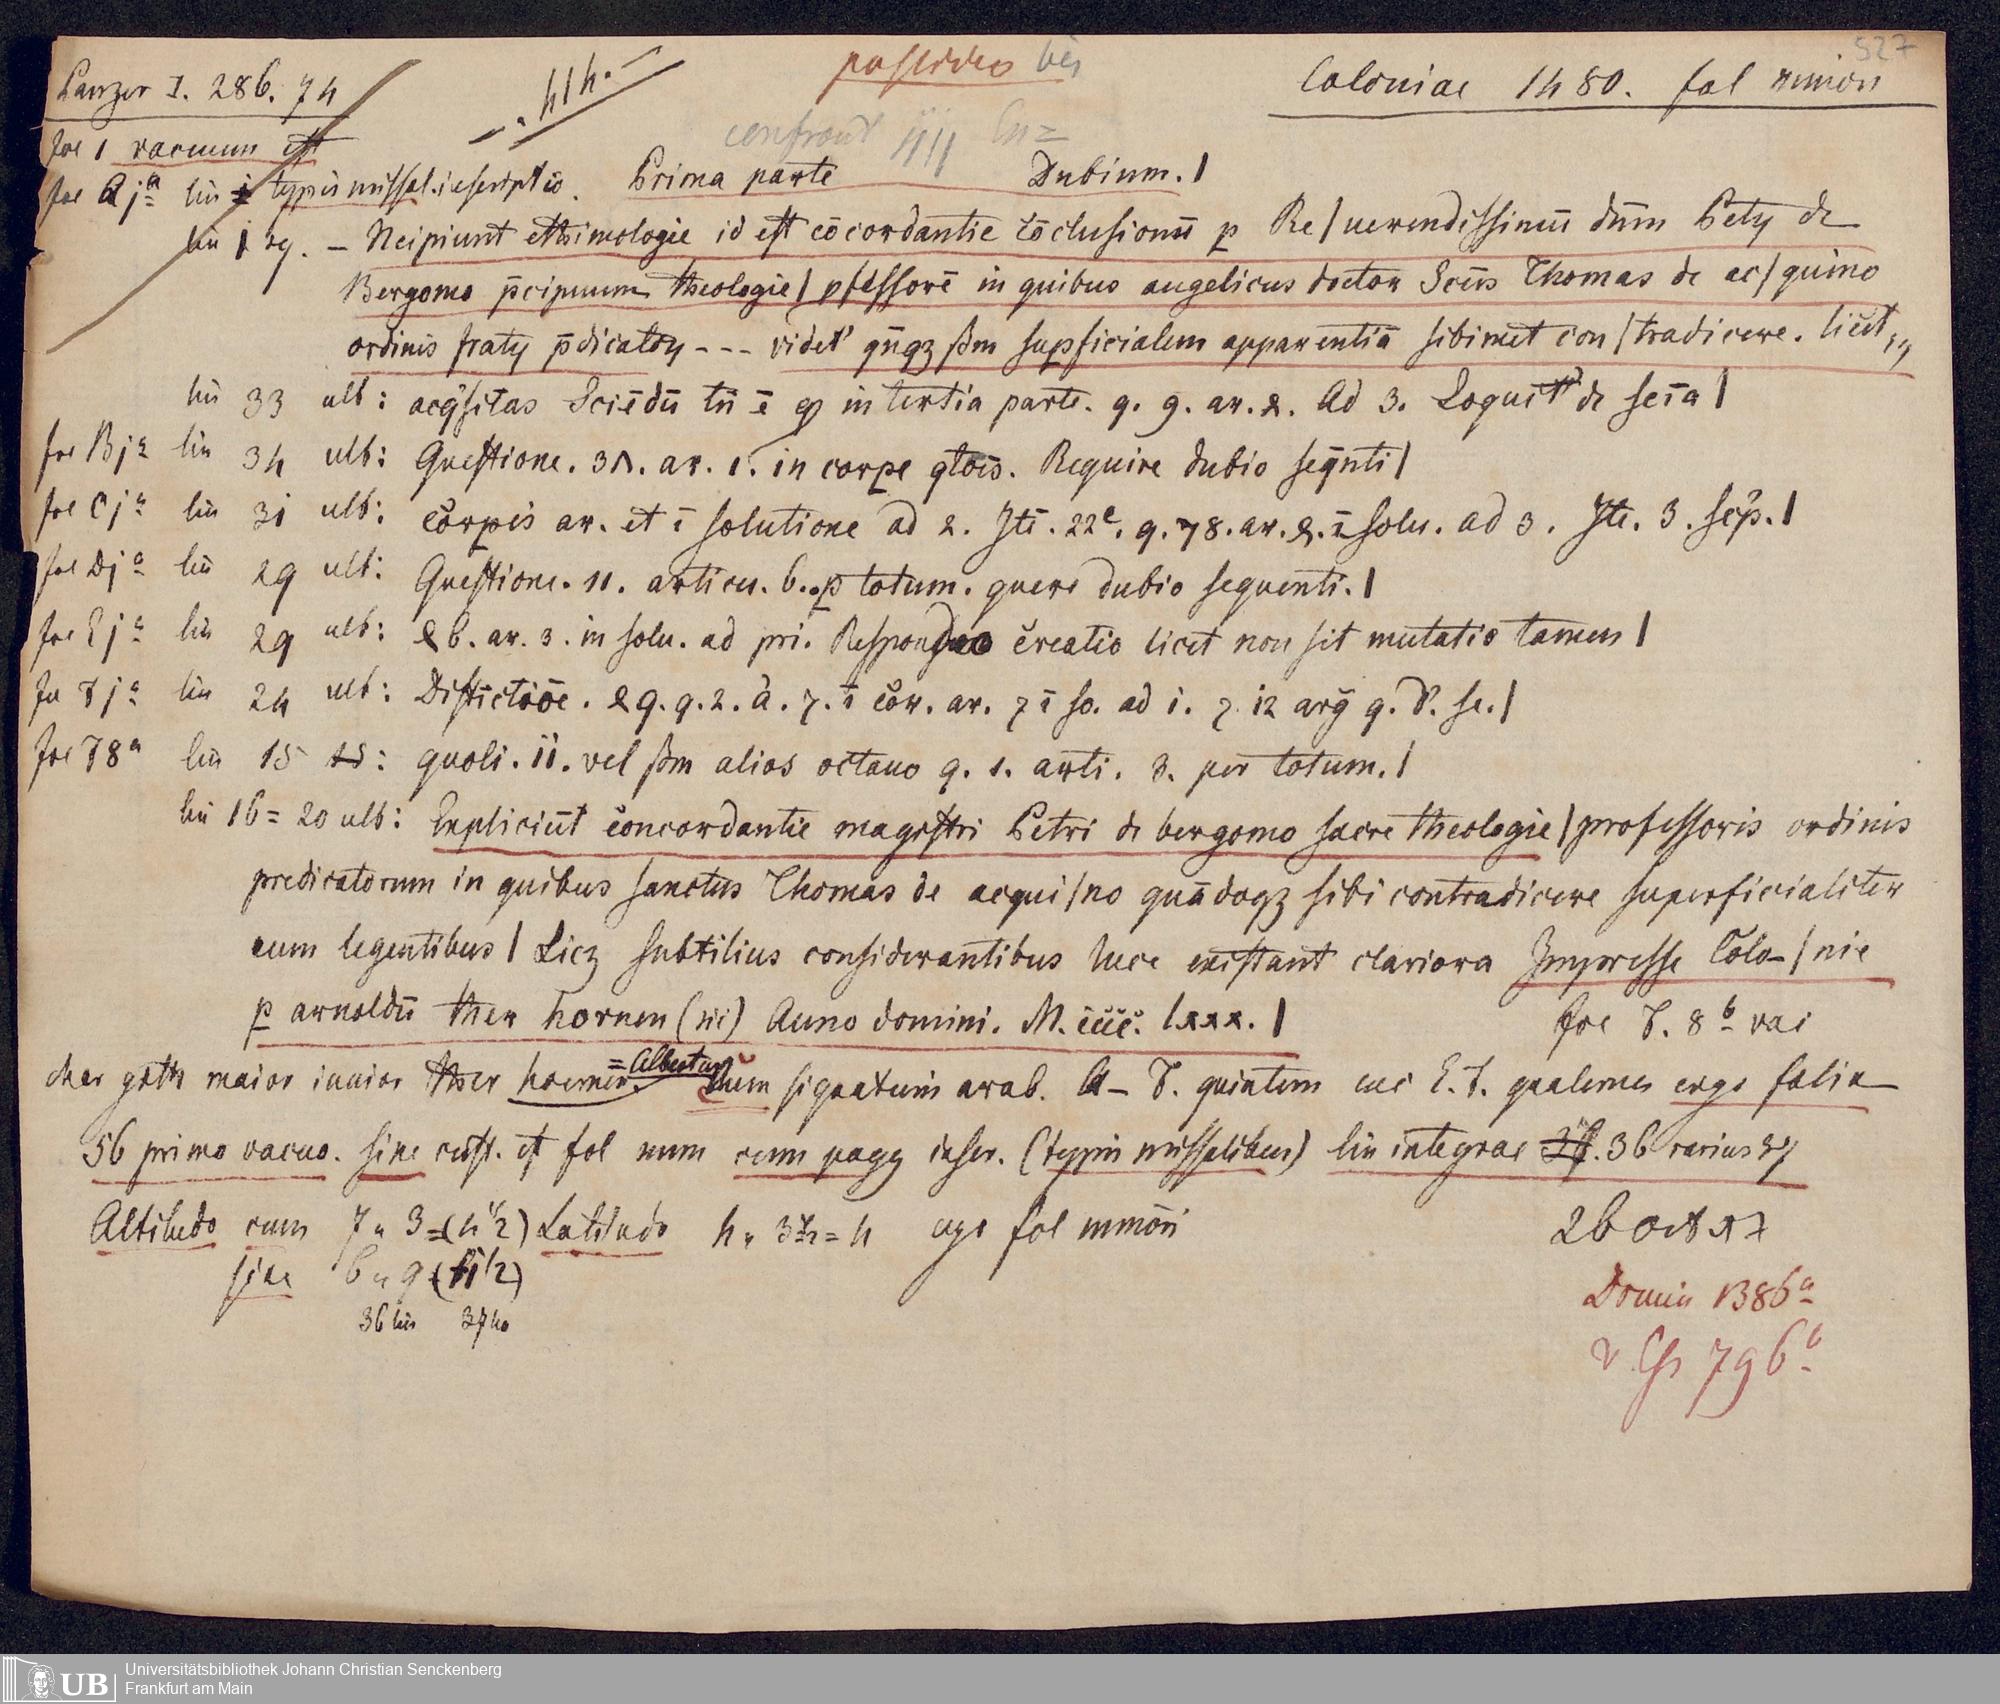 527
possideo bis
Panzer I. 286. 74
414.
Coloniae 1480. fol minori
confront
foe 1 vacuum est
foe Aja lin typis missal. inscriptio. Prima parte Dubium. |
lin 1 sq. – Ncipiunt ethimologie id est cōcordantie cōclusionū p Re/uerendissimū dūm Petꝝ de
Bergomo p̄cipuum theologie/ pfessorē in quibus angelicus doctor Scūs Thomas de ac/quino
ordinis fratꝝ p̄dicatoꝝ --- videt' qn̄qꝫ ßm supficialem apparentiā sibimet con/tradicere. licet
lin 33 ult: acq̄sitas Sciēdū tn̄ ē in tertia parte. q. 9. ar. 2. Ad 3. Loquit' de scīa |
foe Bja lin 34 ult: Questione. 31. ar. 1. in corpe q̄tois. Require dubio seq̄nti |
foe Cja lin 31 ult: corpis ar. et ī solutione ad 2. Itē. 22e. q. 78. ar. 2. ī solu. ad 3. Ite. 3. scp̄. |
foe Dja lin 29 ult: Questione. 11. articu. 6. p totum. quere dubio sequenti. |
foe Eja lin 29 ult: 26. ar. 3. in solu. ad pri. Respondeo creatio licet non sit mutatio tamen |
foe Fja lin 24 ult: Distīctiōe. 29. q. 2. a. 7. ī cor. ar. 7 ī so. ad i. 7 12 arḡ q. d. se. |
foe F8a lin 15 : quoli. ii. vel ßm alios octauo q. 1. arti. 3. per totum. |
lin 16 = 20 ult: Expliciūt concordantie magistri Petri de bergomo sacre theologie / professoris ordinis
predicatorum in quibus sanctus Thomas de acqui/no quādoqꝫ sibi contradicere superficialiter
eum legentibus / Licꝫ subtilius considerantibus luce existant clariora Impresse Colo-/nie
p arnoldū ther hornen (sic) Anno domini. M. cccc. lxxx. | foe F. 8b vac
char goth maior iunior ther hoernen = Albertus cum signaturis arab. A – F. quintern exc E. F. quaternes ergo folia
56 primo vacuo. sine cust. et fol num cum pagg inscr. (typis missalibus) lin integrae 36 rarius 37
Altitudo cum 7 " 3 = (4 1/2) Latitudo 4 " 3 = 4 ergo fol minori
26 Oct
sine 6 " 9 (1/2)
36 lin 37 lin
Domin 1386a
796b
Universitätsbibliothek Johann Christian Senckenberg
Frankfurt am Main
UB